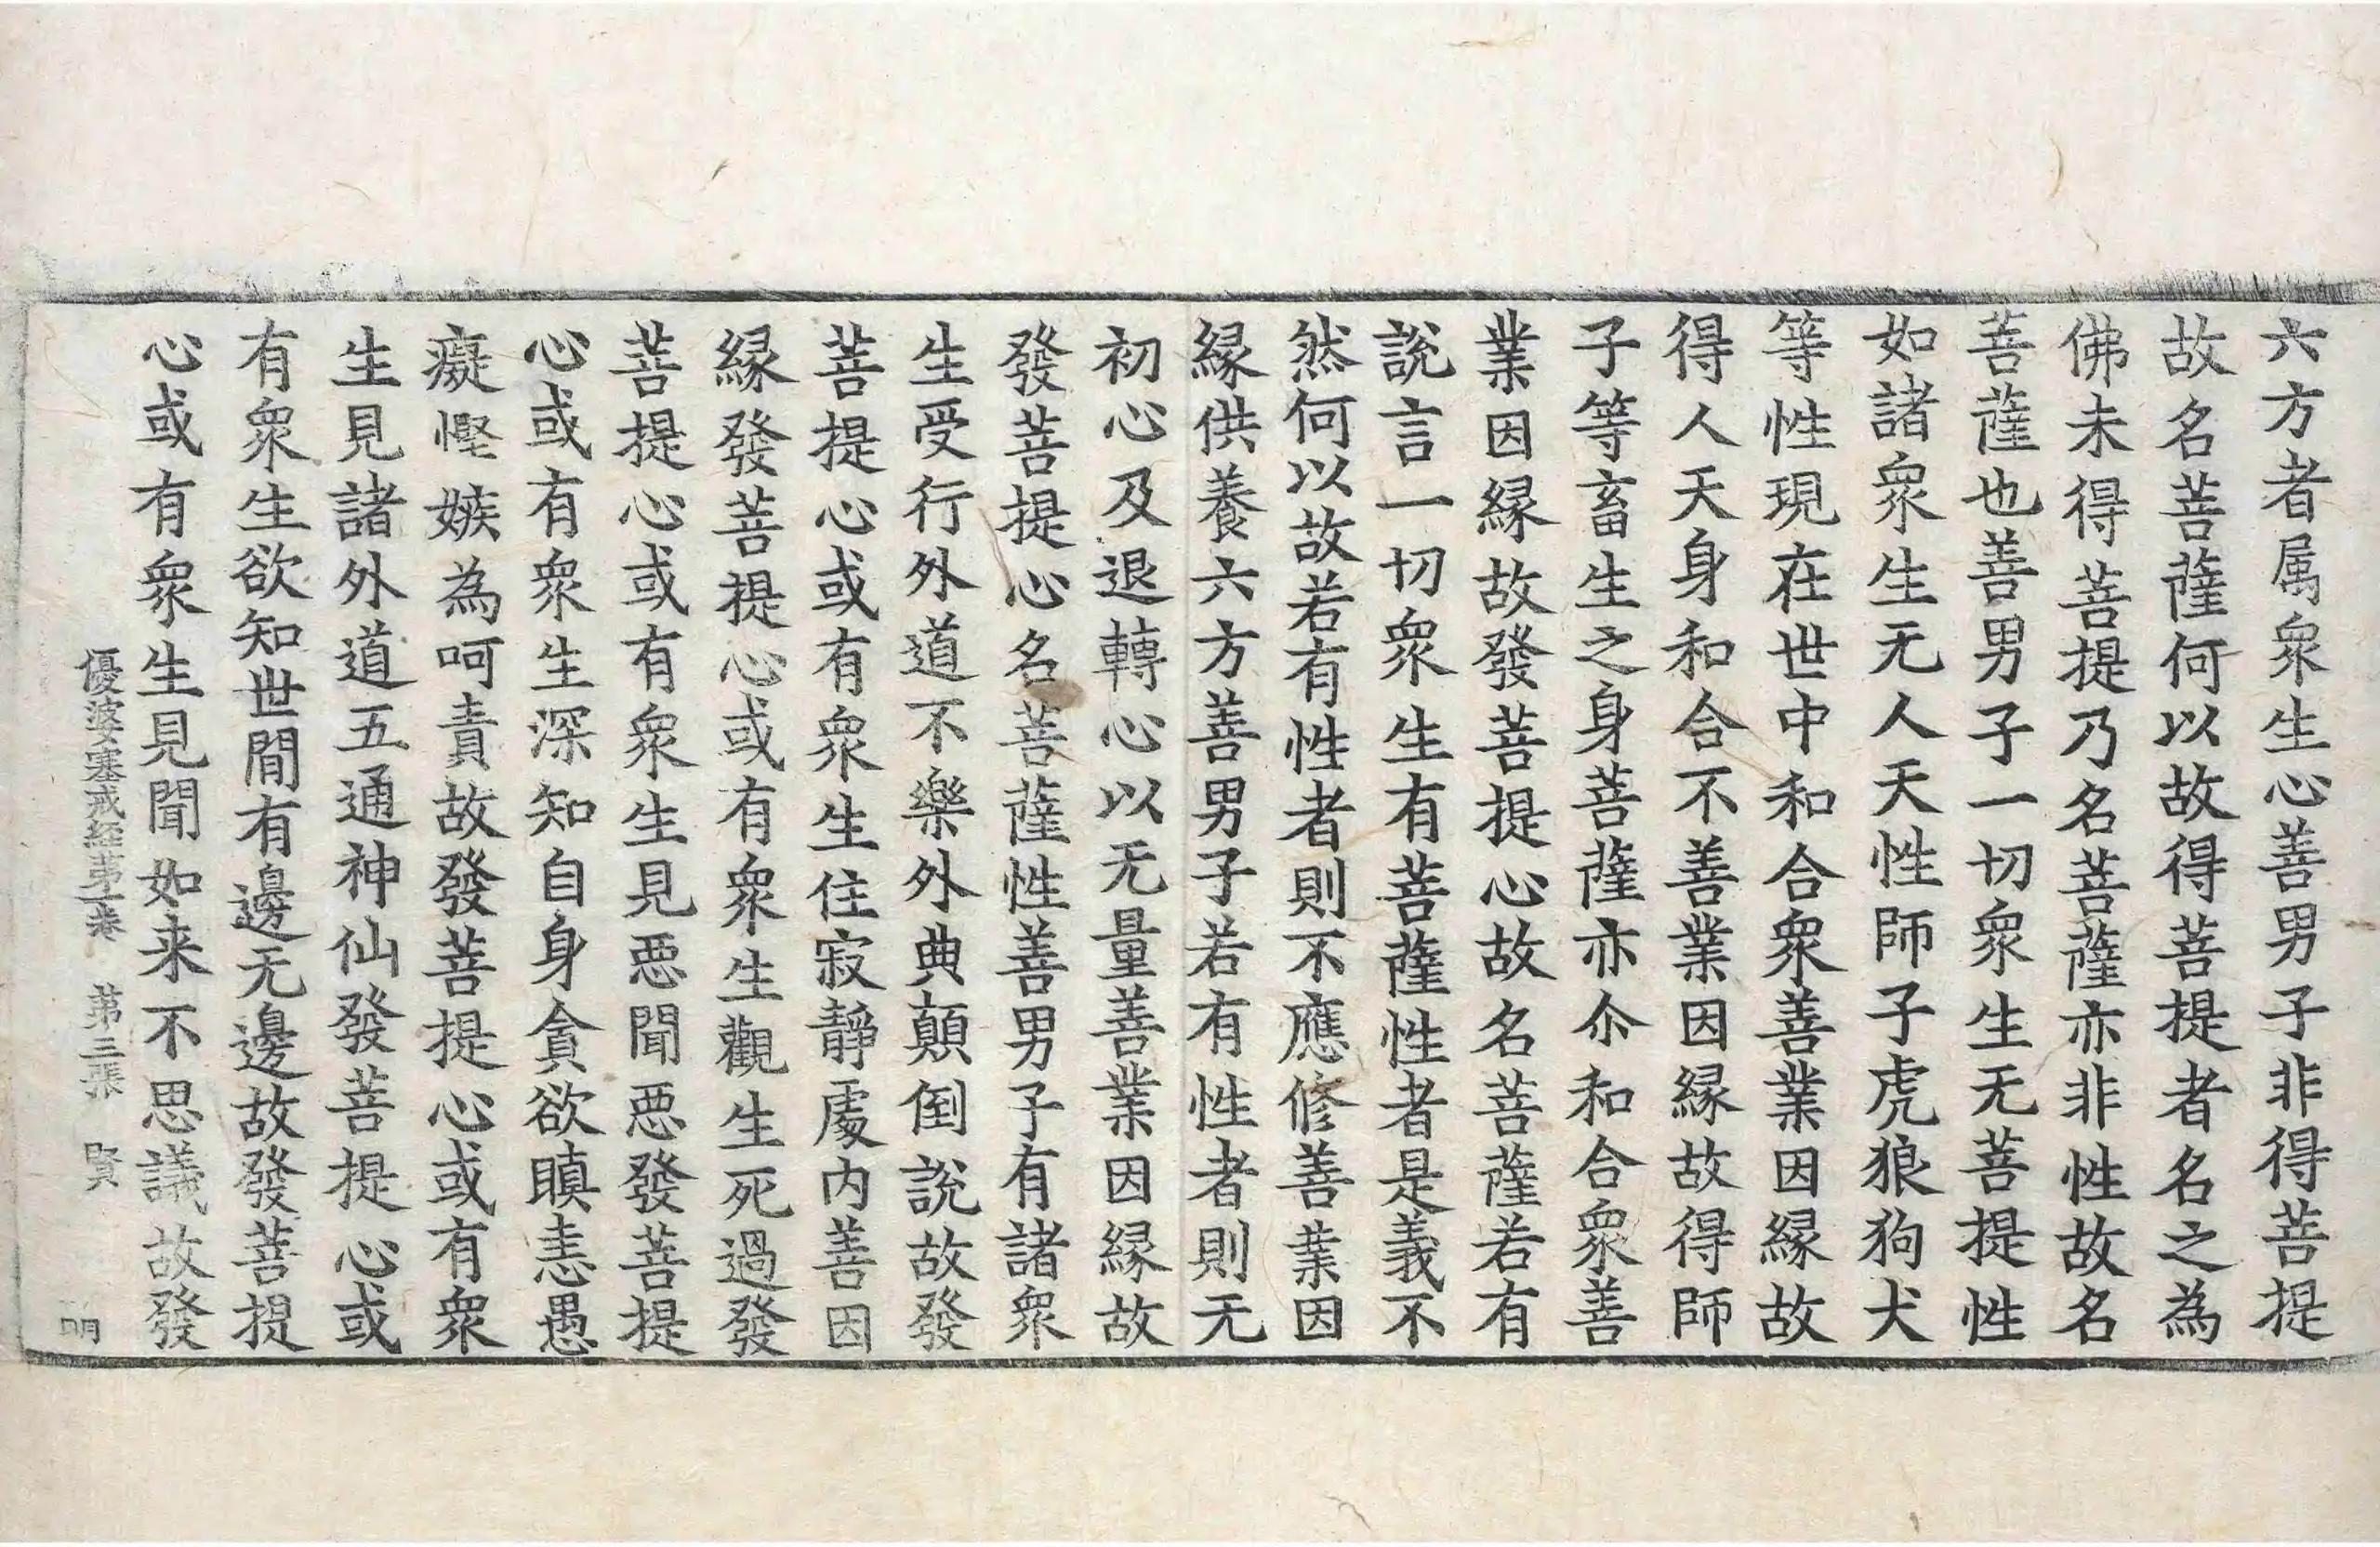 六方者属衆生心善男子非得菩提
故名菩薩何以故得菩提者名之為
佛未得菩提乃名菩薩亦非性故名
菩薩也善男子一切衆生无菩提性
如諸衆生无人天性師子虎狼狗犬
等性現在世中和合衆善業因縁故
得人天身和合不善業因縁故得師
子等畜生之身菩薩亦尒和合衆善
業因縁故發菩提心故名菩薩若有
說言一切衆生有菩薩性者是義不
然何以故若有性者則不應修善業因
縁供養六方善男子若有性者則无
初心及退轉心以无量善業因縁故
發菩提心名菩薩性善男子有諸衆
生受行外道不樂外典顛倒說故發
菩提心或有衆生住寂靜處内善因
縁發菩提心或有衆生觀生死過發
菩提心或有衆生見惡聞惡發菩提
心或有衆生深知自身貪欲瞋恚愚
癡慳嫉為呵責故發菩提心或有衆
生見諸外道五通神仙發菩提心或
有衆生欲知世間有邊无邊故發菩提
心或有衆生見聞如来不思議故發
優婆塞戒經第一卷 第三張 賢